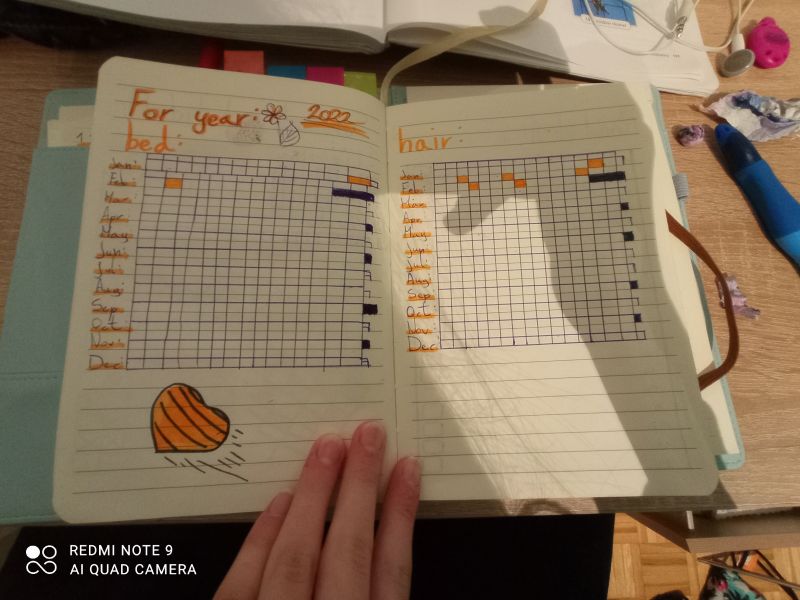 For year: 2022
bed:
Jan:
Feb:
Mar:
Apr:
May:
Jun:
Jul:
Aug:
Sep:
Oct:
Nov:
Dec:
hair:
Jan:
Feb:
Mar:
Apr:
May:
Jun:
Jul:
Aug:
Sep:
Oct:
Nov:
Dec:
REDMI NOTE 9
AI QUAD CAMERA